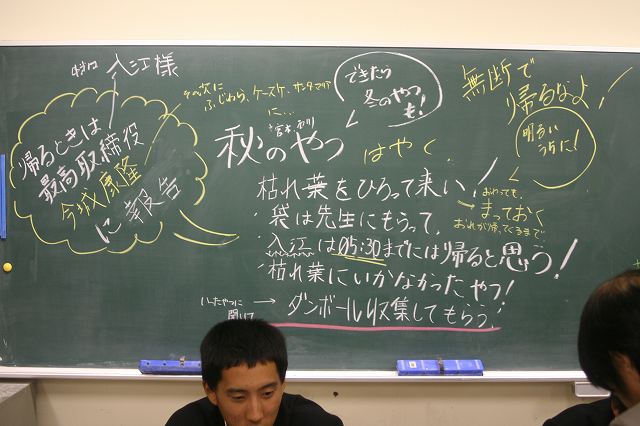 入江様
帰るときは
最高取締役
今城康隆
に報告
その次に
ふじわら、ケースケ、サンタマリア
に…
できたら
冬のやつ
も!
無断で
帰るなよ!
明るい
うちに!
秋のやつ
はやく.
枯れ葉をひろって来い!
・袋は先生にもらって.
おわっても、
→まっておく
おれが帰ってくるまで
・入江は05:30までには帰ると思う!
・枯れ葉にいかなかったやつ!
聞いて
→ダンボール収集してもらう.